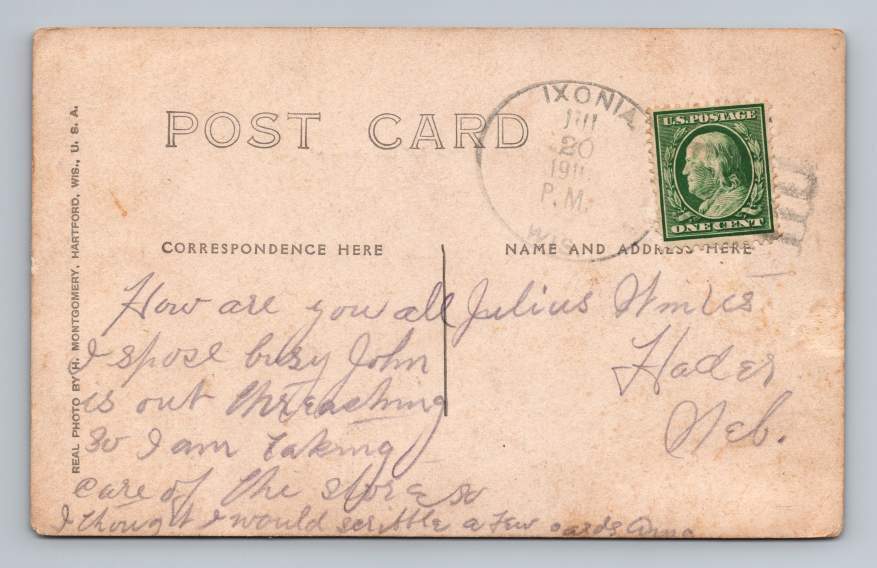 POST CARD
IXONIA
JUL
20
191
P.M.
WIS
U.S. POSTAGE
ONE CENT
CORRESPONDENCE HERE
NAME AND ADDRESS HERE
REAL PHOTO BY H. MONTGOMERY, HARTFORD, WIS., U. S. A.
How are you all
I spose busy John
is out threashing
so I am taking
care of the store so
I thought I would scribble a few cards Anna
Julius
Hader
Neb.